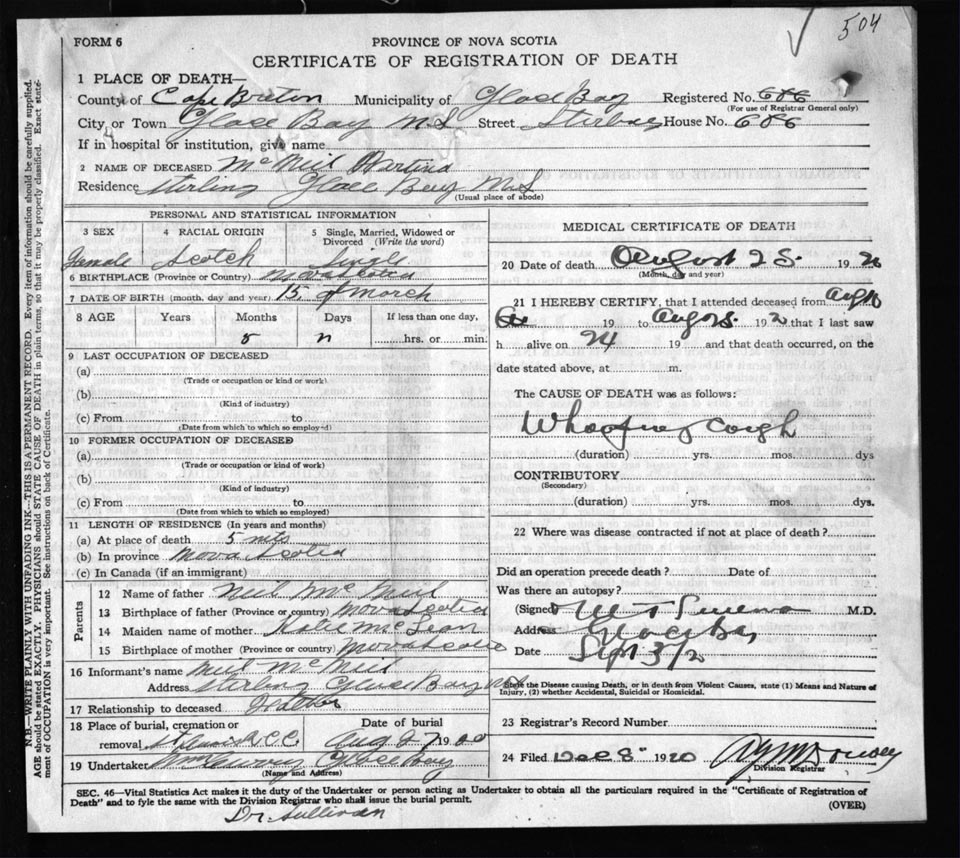 504
FORM 6
PROVINCE OF NOVA SCOTIA
CERTIFICATE OF REGISTRATION OF DEATH
1 PLACE OF DEATH—
County of Cape Breton Municipality of Glace Bay Registered No. 686
(For use of Registrar General only)
City or Town Glace Bay N.S Street Sterling House No. 686
If in hospital or institution, give name
2 NAME OF DECEASED McNeil
Residence Sterling Glace Bay N.S
(Usual place of abode)
PERSONAL AND STATISTICAL INFORMATION
3 SEX 4 RACIAL ORIGIN 5 Single, Married, Widowed or Divorced (Write the word)
Female Scotch Single
6 BIRTHPLACE (Province or Country) Nova Scotia
7 DATE OF BIRTH (month, day and year) 15 of March
8 AGE Years Months Days If less than one day,
5 hrs. or min.
9 LAST OCCUPATION OF DECEASED
(a)
(Trade or occupation or kind or work)
(b)
(Kind of industry)
(c) From to
(Date from which to which so employed)
10 FORMER OCCUPATION OF DECEASED
(a)
(Trade or occupation or kind of work)
(b)
(Kind of industry)
(c) From to
(Date from which to which so employed)
11 LENGTH OF RESIDENCE (In years and months)
(a) At place of death 5 mts
(b) In province Nova Scotia
(c) In Canada (if an immigrant)
Parents
12 Name of father Neil McNeil
13 Birthplace of father (Province or country) Nova Scotia
14 Maiden name of mother Katie McLean
15 Birthplace of mother (Province or country) Nova Scotia
16 Informant's name Neil McNeil
Address Sterling Glace Bay N.S
17 Relationship to deceased Father
18 Place of burial, cremation or removal Date of burial
C.C. Aug 27 19
19 Undertaker Glace Bay
(Name and Address)
MEDICAL CERTIFICATE OF DEATH
20 Date of death August 25 1920
(Month, day and year)
21 I HEREBY CERTIFY, that I attended deceased from Aug
19 to Aug 25 192 that I last saw
h alive on 24 19 and that death occurred, on the
date stated above, at m.
The CAUSE OF DEATH was as follows:
Whooping Cough
(duration) yrs. mos. dys
CONTRIBUTORY
(Secondary)
(duration) yrs. mos. dys.
22 Where was disease contracted if not at place of death?
Did an operation precede death? Date of
Was there an autopsy?
(Signed M.D.
Address Glace Bay
Date Sept 3/2
State the Disease causing Death, or in death from Violent Causes, state (1) Means and Nature of Injury, (2) whether Accidental, Suicidal or Homicidal.
23 Registrar's Record Number
24 Filed Dec 8 1920
Division Registrar
SEC. 46—Vital Statistics Act makes it the duty of the Undertaker or person acting as Undertaker to obtain all the particulars required in the "Certificate of Registration of
Death" and to fyle the same with the Division Registrar who shall issue the burial permit. (OVER)
Dr. Sullivan
N.B.—WRITE PLAINLY WITH UNFADING INK—THIS IS A PERMANENT RECORD. Every item of information should be carefully supplied.
AGE should be stated EXACTLY. PHYSICIANS should STATE CAUSE OF DEATH in plain terms, so that it may be properly classified. Exact statement of OCCUPATION is very important. See instructions on back of Certificate.